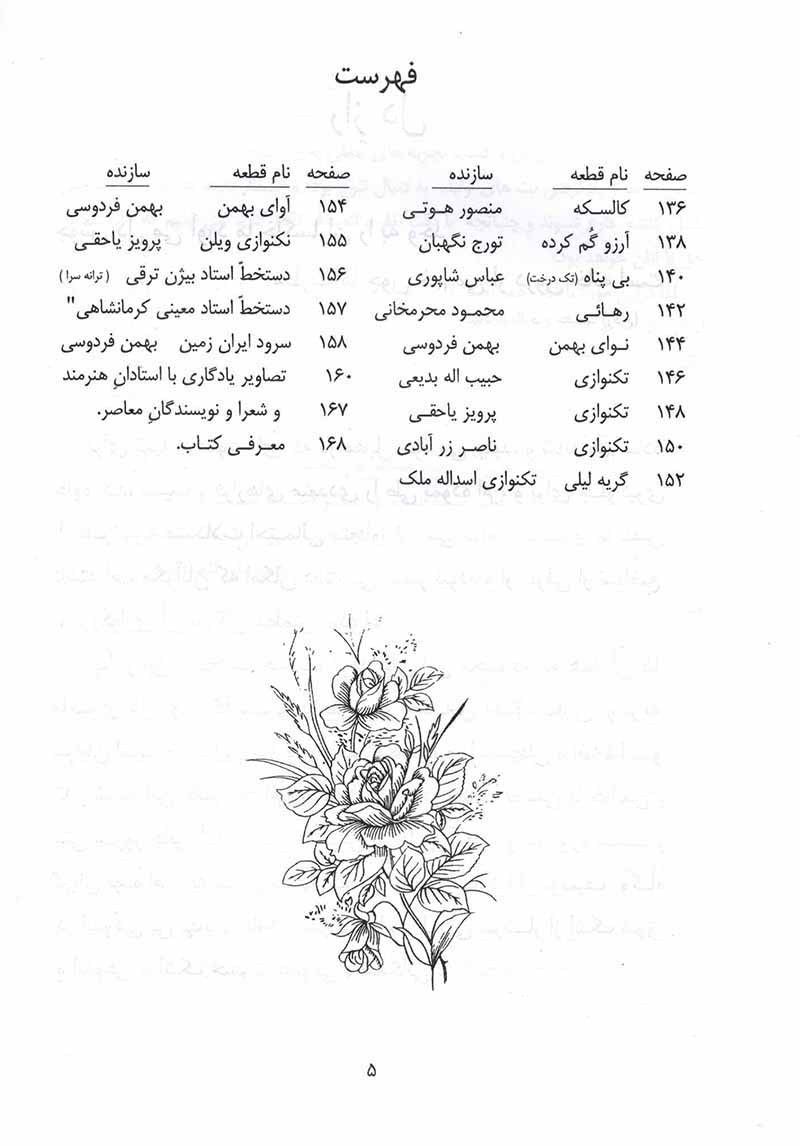 فهرست
صفحه نام قطعه سازنده
۱۳۶ کالسکه منصور هوتی
۱۳۸ آرزو گُم کرده تورج نگهبان
۱۴۰ بی پناه (تک درخت) عباس شاپوری
۱۴۲ رهائی محمود محرمخانی
۱۴۴ نوای بهمن بهمن فردوسی
۱۴۶ تکنوازی حبیب اله بدیعی
۱۴۸ تکنوازی پرویز یاحقی
۱۵۰ تکنوازی ناصر زر آبادی
۱۵۲ گریه لیلی تکنوازی اسداله ملک
صفحه نام قطعه سازنده
۱۵۴ آوای بهمن بهمن فردوسی
۱۵۵ نکنوازی ویلن پرویز یاحقی
۱۵۶ دستخطّ استاد بیژن ترقی (ترانه سرا)
۱۵۷ دستخطّ استاد معینی کرمانشاهی"
۱۵۸ سرود ایران زمین بهمن فردوسی
۱۶۰ تصاویر یادگاری با استادانِ هنرمند
۱۶۷ و شعرا و نویسندگانِ معاصر.
۱۶۸ معرفی کتاب.
۵